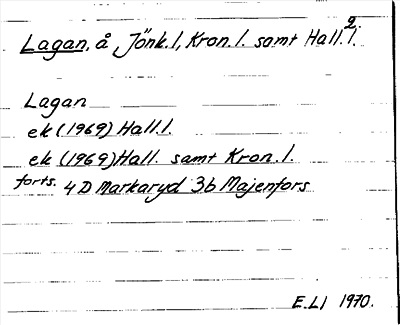 Lagan, å, Jönk.l, Kron.l. samt Hall.l.
2
Lagan
ek (1969) Hall.l.
ek (1969) Hall. samt Kron.l.
forts. 4D Markaryd 3b Majenfors
E.LI 1970.